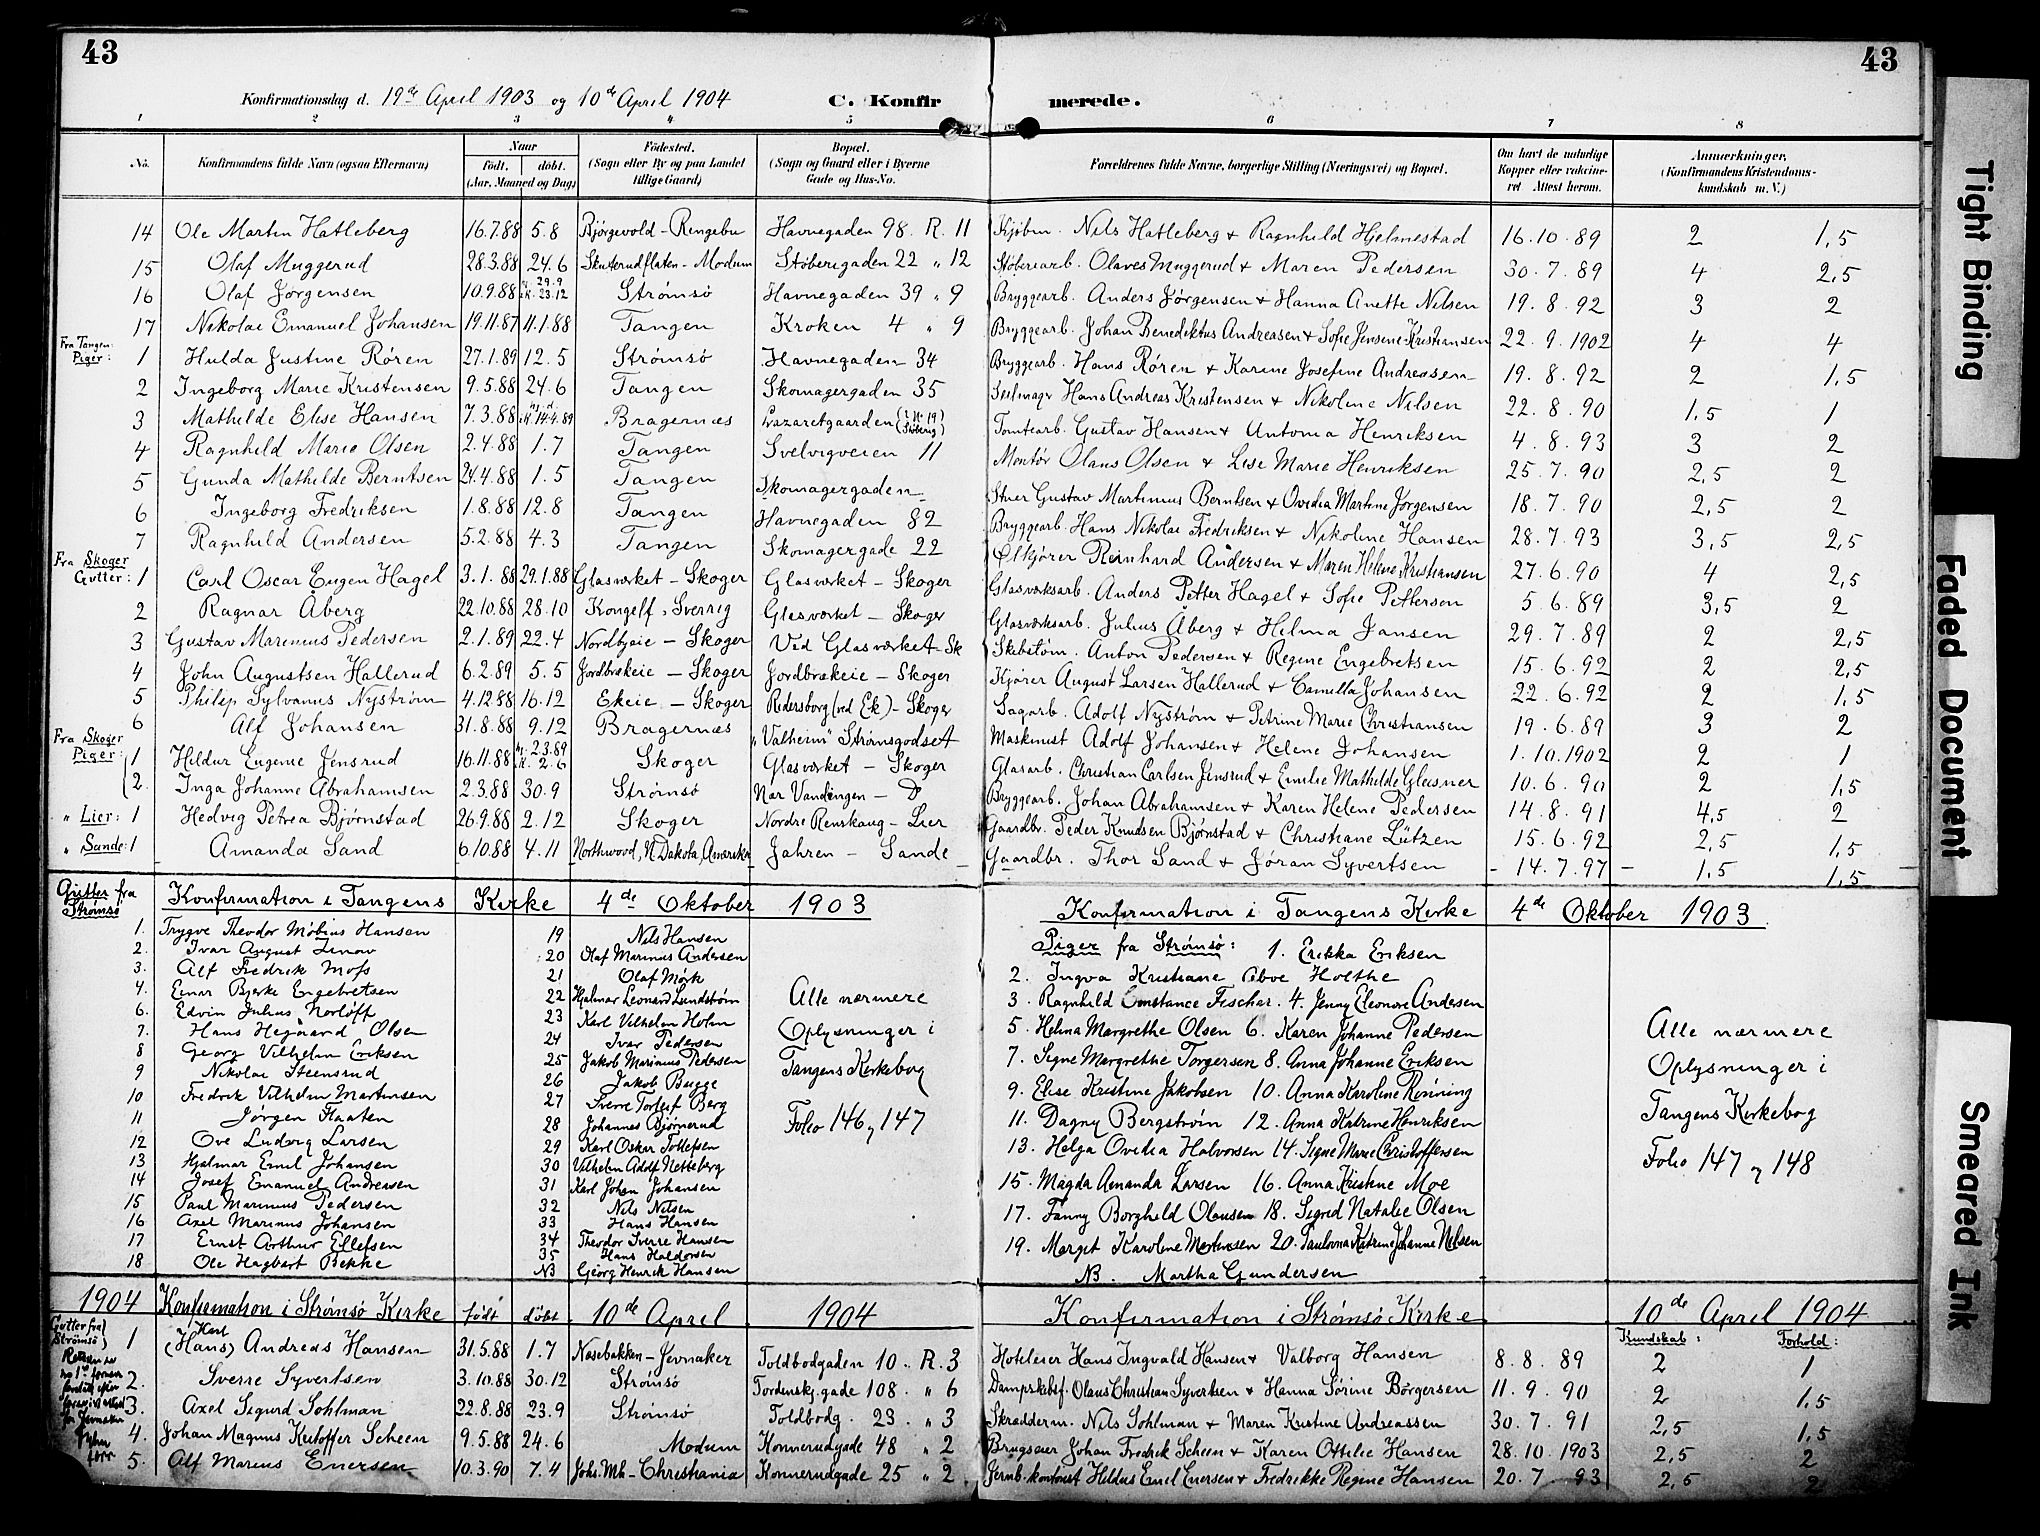 43
43
Konfirmationsdag d. 19de April 1903 og 10de April 1904
C. Konfirmerede.
1 2 3 4 5 6 7 8
No. Konfirmandens fulde Navn (ogsaa Efternavn) Naar født. døbt. (Aar, Maaned og Dag) Fødested. (Sogn eller By og paa Landet tillige Gaard) Bopæl. (Sogn og Gaard eller i Byerne Gade og Hus-No.) Forældrenes fulde Navne, borgerlige Stilling (Næringsvei) og Bopæl. Om havt de naturlige Kopper eller vaccineret. Attest herom. Anmærkninger. (Konfirmandens Kristendomskundskab m. V.)
14 Ole Martin Hatleberg 16.7.88 5.8 Bjørgevold - Ringebu Havnegaden 98. R. 11 Kjøbm. Nils Hatleberg + Ragnhild Hjelmestad 16.10.89 2 1,5
15 Olaf Muggerud 28.3.88 24.6 Skuterudflaten - Modum Støberigaden 22 " 12 Støberiarb. Olaves Muggerud + Maren Pedersen 30.7.89 4 2,5
16 Olaf Jørgensen 10.9.88 29.9 K. 23.12 Strømsø Havnegaden 39 " 9 Bryggearb. Anders Jørgensen + Hanna Anette Nilsen 19.8.92 3 2
17 Nikolai Emanuel Johansen 19.11.87 11.1.88 Tangen Kroken 4 " 9 Bryggearb. Johan Benediktus Andreasen + Sofie Jensine Kristiansen 22.9.1902 4 4
Fra Tangen:
Piger: 1 Hulda Justine Røren 27.1.89 12.5 Strømsø Havnegaden 34 Bryggearb. Hans Røren + Karine Josefine Andreasen 19.8.92 2 1,5
2 Ingeborg Marie Kristensen 9.5.88 24.6 Tangen Skomagergaden 35 Seilmager Hans Andreas Kristensen + Nikoline Nilsen 22.8.90 1,5 1
3 Mathilde Elise Hansen 7.3.88 14.4.89 Bragernes Lazaretgaarden Tomtearb. Gustav Hansen + Antonia Henriksen 4.8.93 3 2
4 Ragnhild Marie Olsen 2.4.88 1.7 Tangen Svelvigveien 11 Montør Olaus Olsen + Lise Marie Henriksen 25.7.90 2,5 2
5 Gunda Mathilde Berntsen 24.4.88 1.5 Tangen Skomagergaden Stuer Gustav Martinius Berntsen + Ovidia Martine Jørgensen 18.7.90 2,5 2
6 Ingeborg Fredriksen 1.8.88 12.8 Tangen Havnegaden 82 Bryggearb. Hans Nikolai Fredriksen + Nikoline Hansen 28.7.93 3,5 2,5
7 Ragnhild Andersen 5.2.88 4.3 Tangen Skomagergade 22 Ølkjører Reinhard Andersen + Maren Helene Kristiansen 27.6.90 4 2,5
Fra Skoger
Gutter: 1 Carl Oscar Eugen Hagel 3.1.88 29.1.88 Glasværket - Skoger Glasværket - Skoger Glasværksarb. Anders Petter Hagel + Sofie Pettersen 5.6.89 3,5 2
2 Ragnar Åberg 22.10.88 28.10 Kongelf, Sverrig Glasværket - Skoger Glasværksarb. Julius Åberg + Hilma Jansen 29.7.89 2 2,5
3 Gustav Marinius Pedersen 2.1.89 22.4 Nordbyeie - Skoger Ved Glasværket Sk Skibstøm. Anton Pedersen + Regine Engebretsen 15.6.92 2 2,5
4 John Augustsen Hallerud 6.2.89 5.5 Jordbrækeie - Skoger Jordbrækeie - Skoger Kjører August Larsen Hallerud + Camilla Johansen 22.6.92 2 1,5
5 Philip Sylvanus Nystrøm 4.12.88 16.12 Ekeie - Skoger Redersborg (ved Ek) - Skoger Sagarb. Adolf Nystrøm + Petrine Marie Christiansen 19.6.89 3 2
6 Alf Johansen 31.8.88 9.12 Bragernæs "Valheim" Strømsgodset Maskinist Adolf Johansen + Helene Johansen 1.10.1902 2 1
Fra Skoger
Piger: 1 Hildur Eugenie Jensrud 16.11.88 2.3.89 K. 2.6 Skoger Glasværket - Skoger Glasarb. Christian Carlsen Jensrud + Emilie Mathilde Gleisner 10.6.90 2 1,5
2. Inga Johanne Abrahamsen 2.3.88 30.9 Strømsø Nær Vandingen - D Bryggearb. Johan Abrahamsen + Karen Helene Pedersen 14.8.91 4,5 2
" Lier: 1 Hedvig Petrea Bjørnstad 26.9.88 2.12 Skoger Nordre Renskaug - Lier Gaardbr. Peder Knudsen Bjørnstad + Christiane Lützen 15.6.92 2,5 1,5
" Sande: 1 Amanda Sand 6.10.88 4.11 Northwood, N. Dakota, Amerika Jahren - Sande Gaardbr. Thor Sand + Jøran Syvertsen - 14.7.97 - 1,5 1,5
Gutter fra Strømsø Konfirmation i Tangens Kirke 4de Oktober 1903
1. Trygve Theodor Møbius Hansen
2. Ivar August Linow
3. Alf Fredrik Mofs
4. Einar Bjerke Engebretsen
6. Edvin Julius Norløff
7. Hans Hegaard Olsen
8 Georg Vilhelm Eriksen
9 Nikolai Steensrud
10 Fredrik Vilhelm Martinsen
11 Jørgen Flaaten
12 Ove Ludvig Larsen
13 Hjalmar Emil Johansen
14 Josef Emanuel Andreasen
15 Paul Marinius Pedersen
16 Axel Marinus Johansen
17 Ernst Arthur Ellefsen
18 Ole Hagbart Bekke
19 Nils Hansen
20 Olaf Marinus Andersen
21 Olaf Mørk
22 Hjalmar Leonard Lundstrøm
23 Karl Vilhelm Holm
24 Ivar Pedersen
25 Jakob Marinus Pedersen
26 Jakob Bugge
27 Sverre Torleif Berg
28 Johannes Bjørnerud
29 Karl Oskar Tollefsen
30 Vilhelm Adolf Netteberg
31 Karl Johan Johansen
32 Nils Nilsen
33 Hans Hansen
34 Theodor Sverre Hansen
35 Hans Haldorsen
NB Georg Henrik Hansen
Alle nærmere
Oplysninger i
Tangens Kirkebog
Folio 146 og 147
Konfirmation i Tangens Kirke 4de Oktober 1903
Piger fra Strømsø: 1. Erikka Eriksen
2. Ingva Kristiane Aboe Holthe
3. Ragnhild Constance Fischer. 4. Jenny Eleonore Andersen
5. Helma Margrethe Olsen 6. Karen Johanne Pedersen
7. Signe Margrethe Torgersen 8. Anna Johanne Eriksen
9. Elise Kristine Jakobsen 10. Anna Karoline Rønning
11. Dagny Bergstrøm 12. Anna Katrine Henriksen
13. Helga Ovidia Halvorsen 14. Signe Marie Christoffersen
15. Magda Amanda Larsen 16. Anna Kristine Moe
17. Fanny Borghild Olausen 18. Sigrid Natalie Olsen
19. Margit Karoline Mortensen 20. Paulovna Katrine Johanne Nilsen
NB. Martha Gundersen
Alle nærmere
Oplysninger i
Tangens Kirkebog
Folio 147 og 148
1904 Konfirmation i Strømsø Kirke født døbt 10de April 1904 Konfirmation i Strømsø Kirke 10de April 1904
Kundskab: Forhold:
Gutter fra Strømsø 1 Karl (Hans) Andreas Hansen 31.5.88 1.7 Næsebakken - Jevnaker Toldbodgaden 10. R. 3 Hoteleier Hans Ingvald Hansen + Valborg Hansen 8.8.89 2 1
2. Sverre Syvertsen 3.10.88 30.12 Strømsø Tordenskj.gade 108. " 6 Dampskibsf. Olaus Christian Syvertsen + Hanna Sørine Børgersen 11.9.90 2 1,5
3. Axel Sigurd Sohlman 22.8.88 23.9 Strømsø Toldbodg. 23. " 3 Skrædderm. Nils Sohlman + Maren Kristine Andreassen 30.7.91 2,5 1,5
4. Johan Magnus Kristoffer Scheen 9.5.88 24.6 Modum Konnerudgade 48 " 2 Brugseier Johan Fredrik Scheen + Karen Ottilie Hansen 28.10.1903 2,5 2
5. Alf Marius Enersen 10.3.90 7.4 Johs. Mh - Christiania Konnerudgade 25 " 2 Jernb. kontorist Hildus Emil Enersen + Fredrikke Regine Hansen 20.7.93 2,5 2
Tight Binding
Faded Document
Smeared Ink